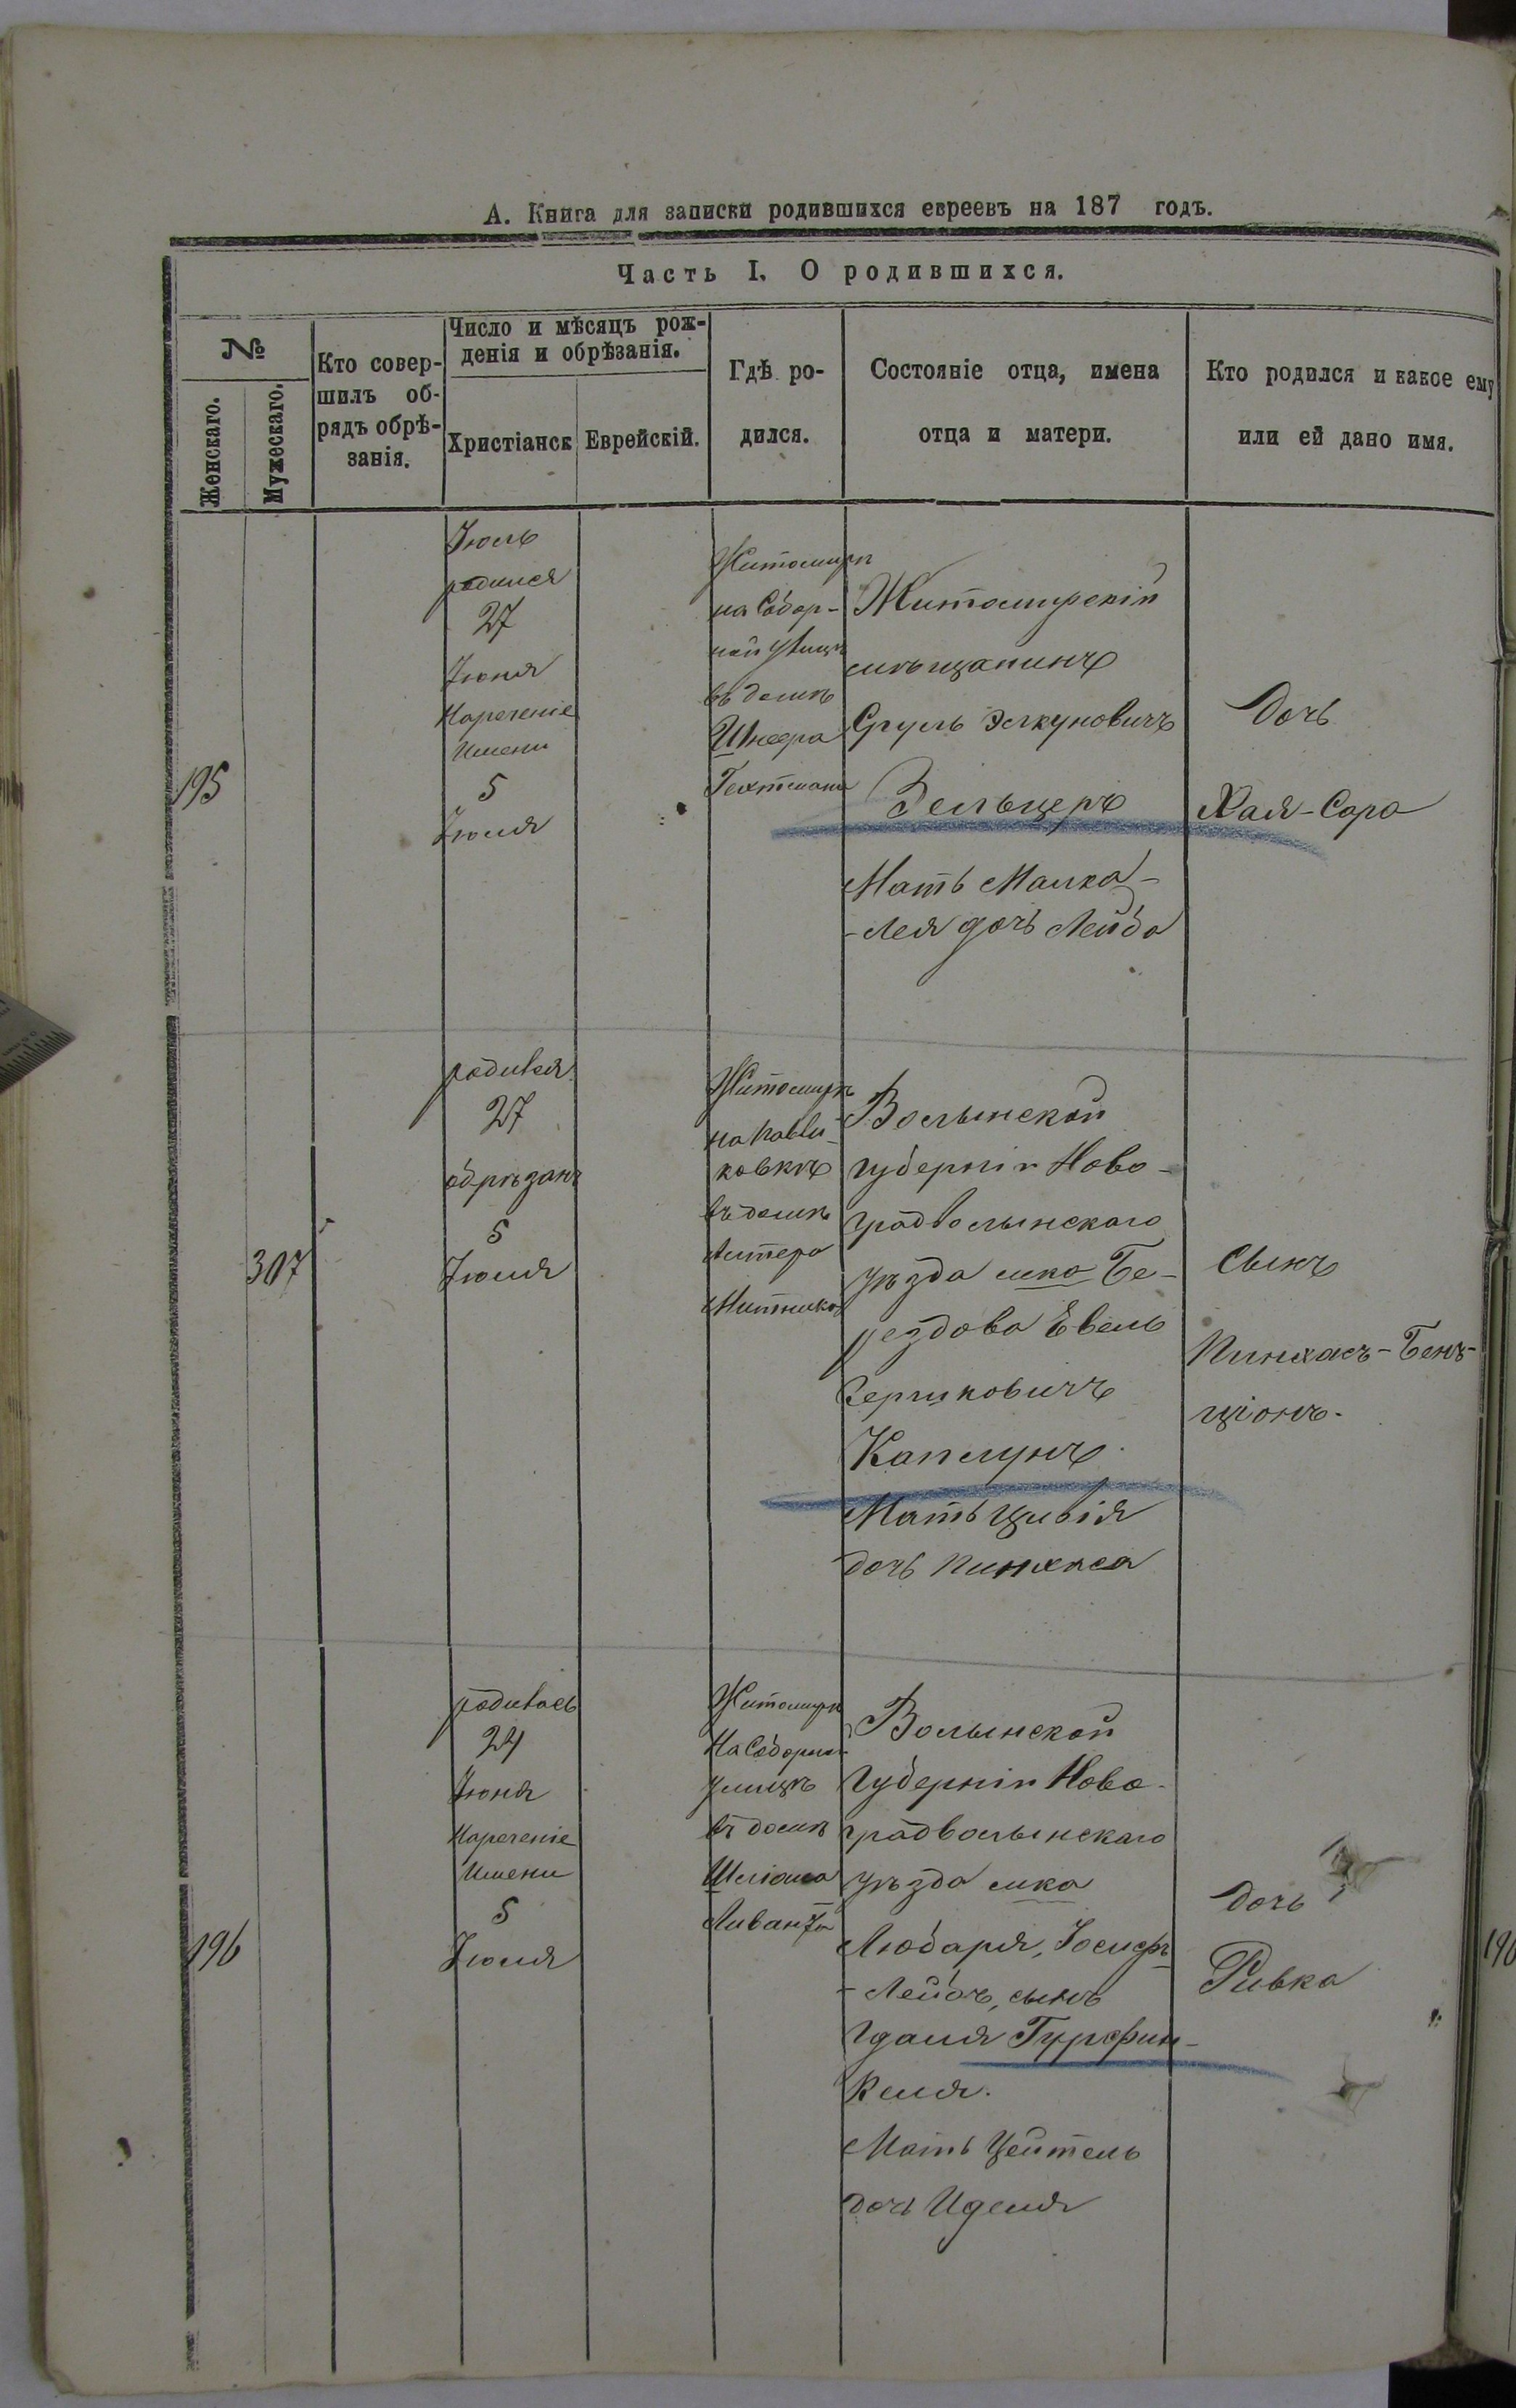 А. Книга для записки родившихся евреевъ на 187 годъ.
Часть I. О родившихся.
№
Женскаго.
Мужескаго.
Кто совер-
шилъ об-
рядъ обрѣ-
занія.
Число и мѣсяцъ рож-
денія и обрѣзанія.
Христіанск
Еврейскій.
Гдѣ ро-
дился.
Состояніе отца, имена
отца и матери.
Кто родился и какое ему
или ей дано имя.
195
Іюль
родился
27
Іюня
Нареченіе
Имени
5
Іюля
Житомиръ
на Собор-
ной улицѣ
въ домѣ
Шнеера
Гехтмана
Житомирскій
мѣщанинъ
Сруль
Зельцеръ
Мать Малка-
-Лея дочь Лейба
Дочь
Хая-Сара
307
родился
27
обрѣзанъ
5
Іюля
Житомиръ
на Павли-
ковкѣ
въ домѣ
Алтера
Митника
Волынской
губерніи Ново-
градволынскаго
уѣзда мка Бе-
рездова Евель
Берковичъ
Каплунъ
Мать Цивія
дочь Пинхаса
Сынъ
Пинхасъ-Бенъ-
ціонъ.
196
родилась
24
Іюня
Нареченіе
Имени
5
Іюля
Житомиръ
на Соборной
улицѣ
въ домѣ
Шліома
Ливанта
Волынской
губерніи Ново-
градволынскаго
уѣзда мка
Любаря, Іосифъ
-Лейбъ, сынъ
Гдаля Гурфин-
келя.
Мать Цейтель
дочь Иделя
Дочь
Ривка
196